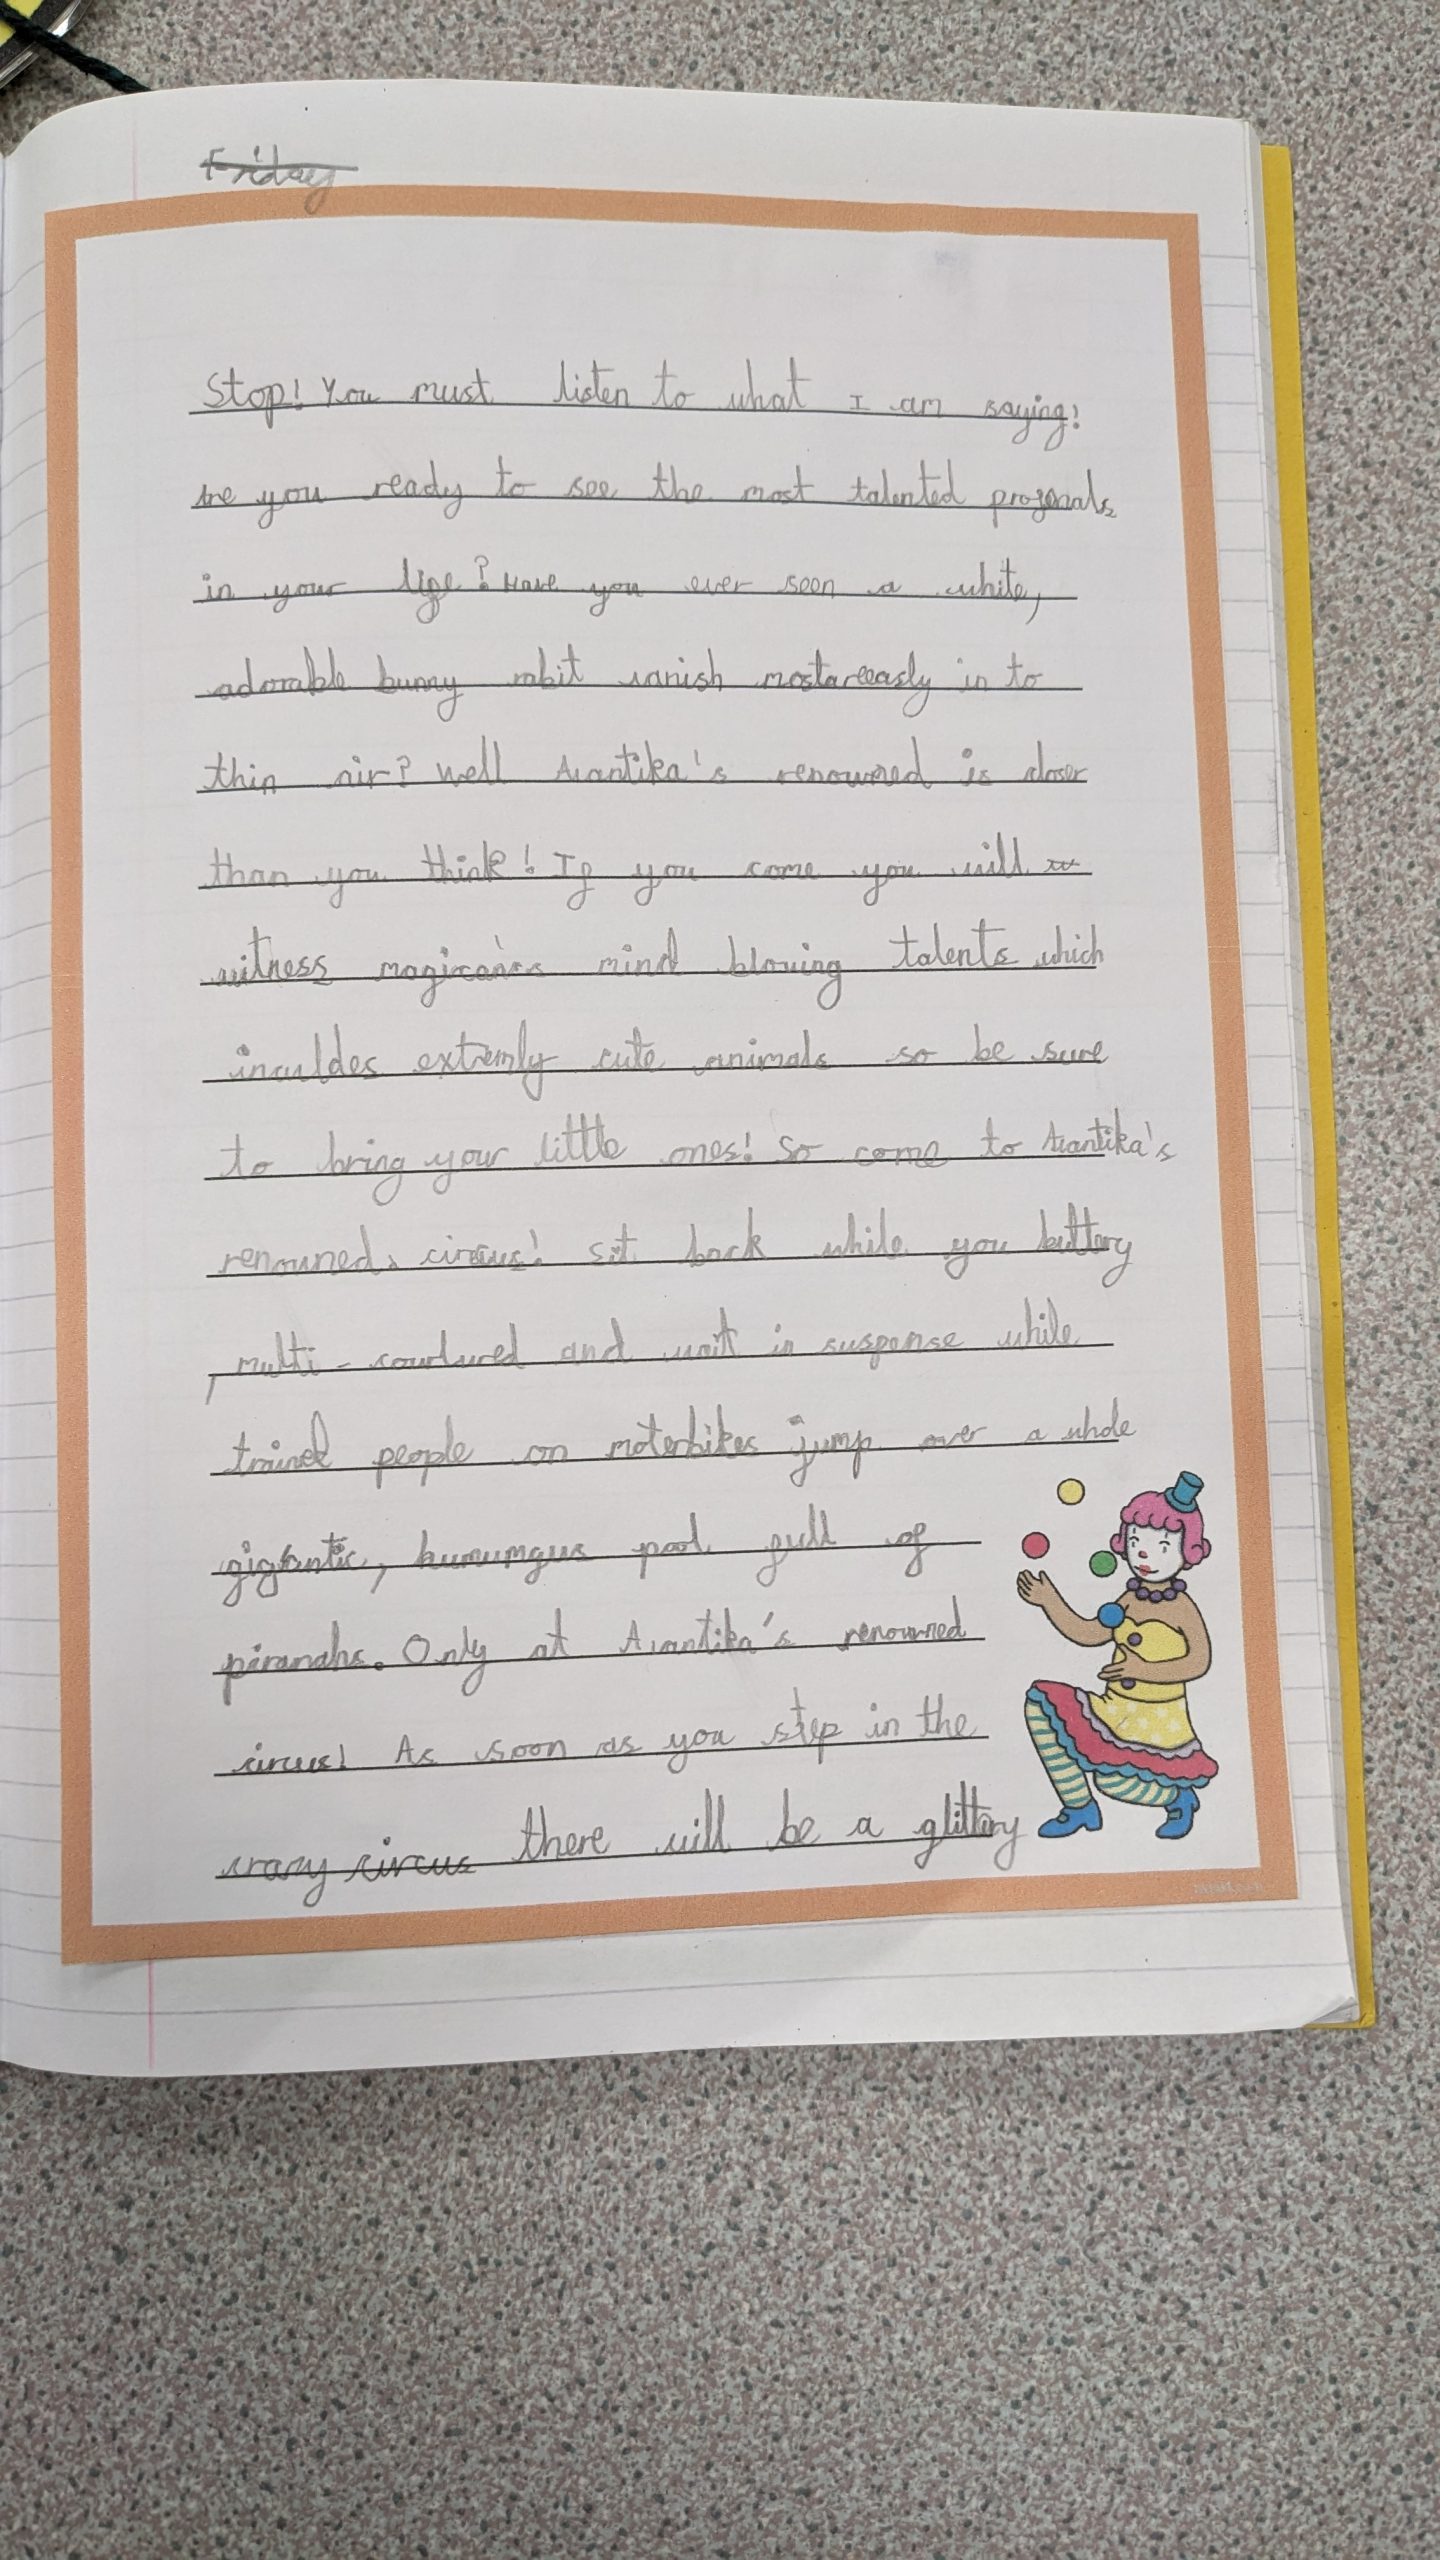 Friday
Stop! You must listen to what I am saying!
Are you ready to see the most talented profenals
in your life? Have you ever seen a white,
adorable bunny rabit vanish mostareeasly in to
thin air? Well Avantika's renowned is closer
than you think! If you come you will
witness magican's mind blowing talents which
inculdes extremly cute animals so be sure
to bring your little ones! So come to Avantika's
renowned circus! Sit back while you buttery
, multi-courlured and wait in suspense while
trained people on moterbikes jump over a whole
gigantic, humumgus pool full of
piranahs. Only at Avantika's renowned
circus! As soon as you step in the
crazy circus there will be a glittery